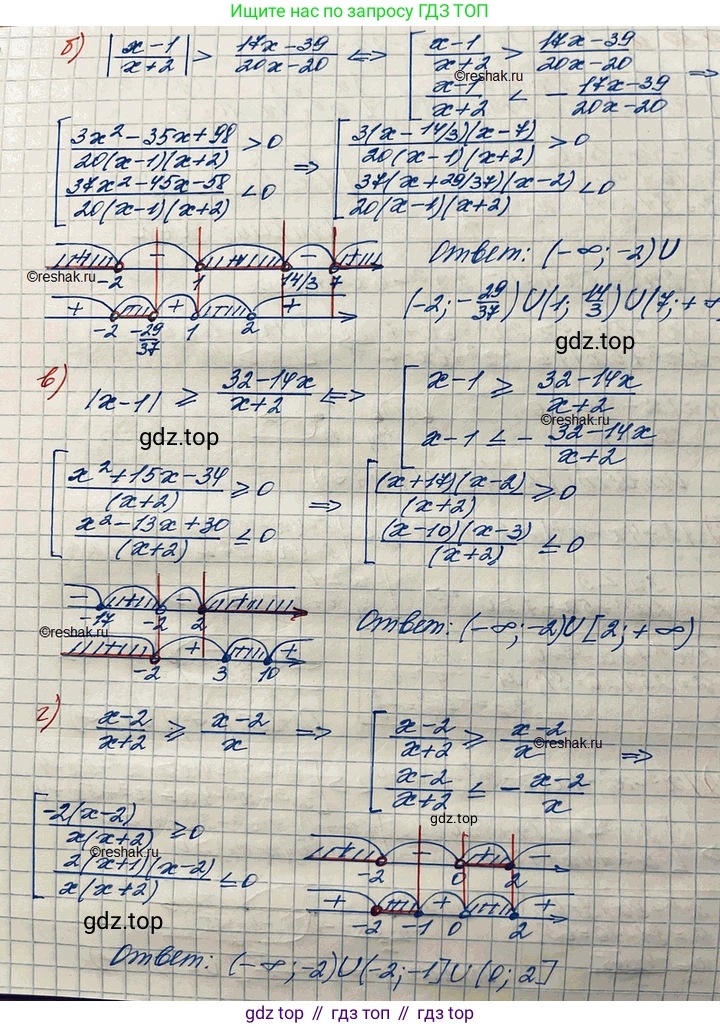 Ищите наc по запросу ГДЗ ТОП
б) |x-1/x+2| > 17x-39/20x-20 ⟺ [ x-1/x+2 > 17x-39/20x-20
x-1/x+2 < - 17x-39/20x-20 ⟹
©reshak.ru
[ 3x²-35x+98/20(x-1)(x+2) > 0 ⟹ [ 3(x-14/3)(x-7)/20(x-1)(x+2) > 0
37x²-45x-58/20(x-1)(x+2) < 0 37(x+29/37)(x-2)/20(x-1)(x+2) < 0
+ - + - +
-2 1 14/3 7
Ответ: (-∞; -2)∪
©reshak.ru
+ - + - +
-2 -29/37 1 2
(-2; -29/37)∪(1; 14/3)∪(7; +∞
gdz.top
в) |x-1| ≥ 32-14x/x+2 ⟺ [ x-1 ≥ 32-14x/x+2
©reshak.ru
x-1 ≤ - 32-14x/x+2
gdz.top
[ x²+15x-34/(x+2) ≥ 0 ⟹ [ (x+17)(x-2)/(x+2) ≥ 0
x²-13x+30/(x+2) ≤ 0 (x-10)(x-3)/(x+2) ≤ 0
- + - +
-17 -2 2
©reshak.ru
Ответ: (-∞; -2)∪[2; +∞)
- + - +
-2 3 10
г) x-2/x+2 ≥ x-2/x ⟹ [ x-2/x+2 ≥ x-2/x
©reshak.ru
x-2/x+2 ≤ - x-2/x ⟹
gdz.top
[ -2(x-2)/x(x+2) ≥ 0
©reshak.ru
2(x+1)(x-2)/x(x+2) ≤ 0
+ - + -
-2 0 2
+ - + - +
-2 -1 0 2
gdz.top
Ответ: (-∞; -2)∪(-2; -1]∪(0; 2]
gdz top // гдз топ // gdz.top